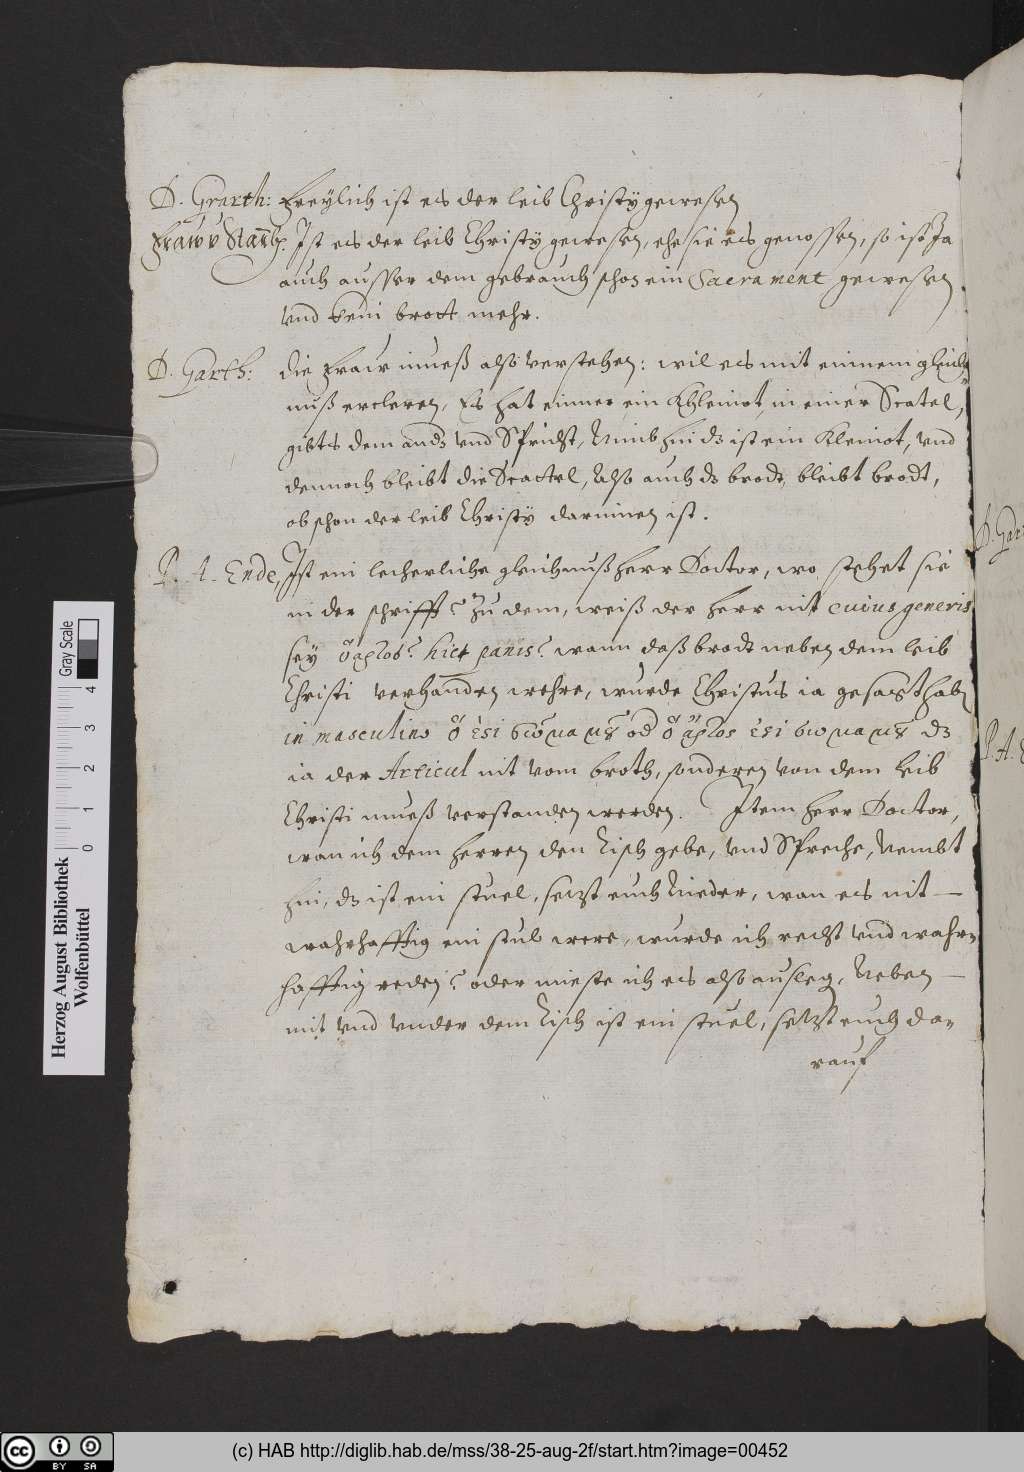 D. Grarth: Freylich ist es der leib Christy gewesen
Fraw v Starb. Ist es der leib Christy gewesen, ehe sie es genossen, so ist Ja
auch ausser dem gebrauch schon ein Sacrament gewesen
vnd kein brott mehr.
D. Garth: die Fraw mueß also verstehen: wil es mit einnem gleich
nuß ercleren, Es hat einner ein Khleinot in einer Scatel,
gibts dem andʒ vnd Spricht, Nimb hin dʒ ist ein Kleinot, vnd
dennoch bleibt die Scattel, Also auch dʒ brodt, bleibt brodt,
ob schon der leib Christy darinnen ist.
P. A. Ende, Ist ein lecherliche gleichnuß herr Doctor, wo stehet sie
in der schrifft? Zu dem, weiß der herr nit cuius generis
sey ὁ ἄρτος? hic panis? wann daß brodt neben dem leib
Christi verhanden wehre, wurde Christus ia gesagt haben
in masculino
ia der Articul nit vom broth, sonderen von dem leib
Christi mueß verstanden werden. Item herr Doctor,
wan ich dem herren den Tisch gebe, vnd Spreche, Nembt
hin, dʒ ist ein stuel, setzt euch Nieder, wan es nit
wahrhafftig ein stul were, wurde ich recht vnd wahr-
hafftig reden? oder mieste ich es also ausleg, Neben
mit vnd vnder dem Tisch ist ein stuel, setzt euch da-
rauf
D. Gar
P. A. E
Herzog August Bibliothek
Wolfenbüttel
Gray Scale
0 1 2 3 4
cc BY SA
(c) HAB http://diglib.hab.de/mss/38-25-aug-2f/start.htm?image=00452